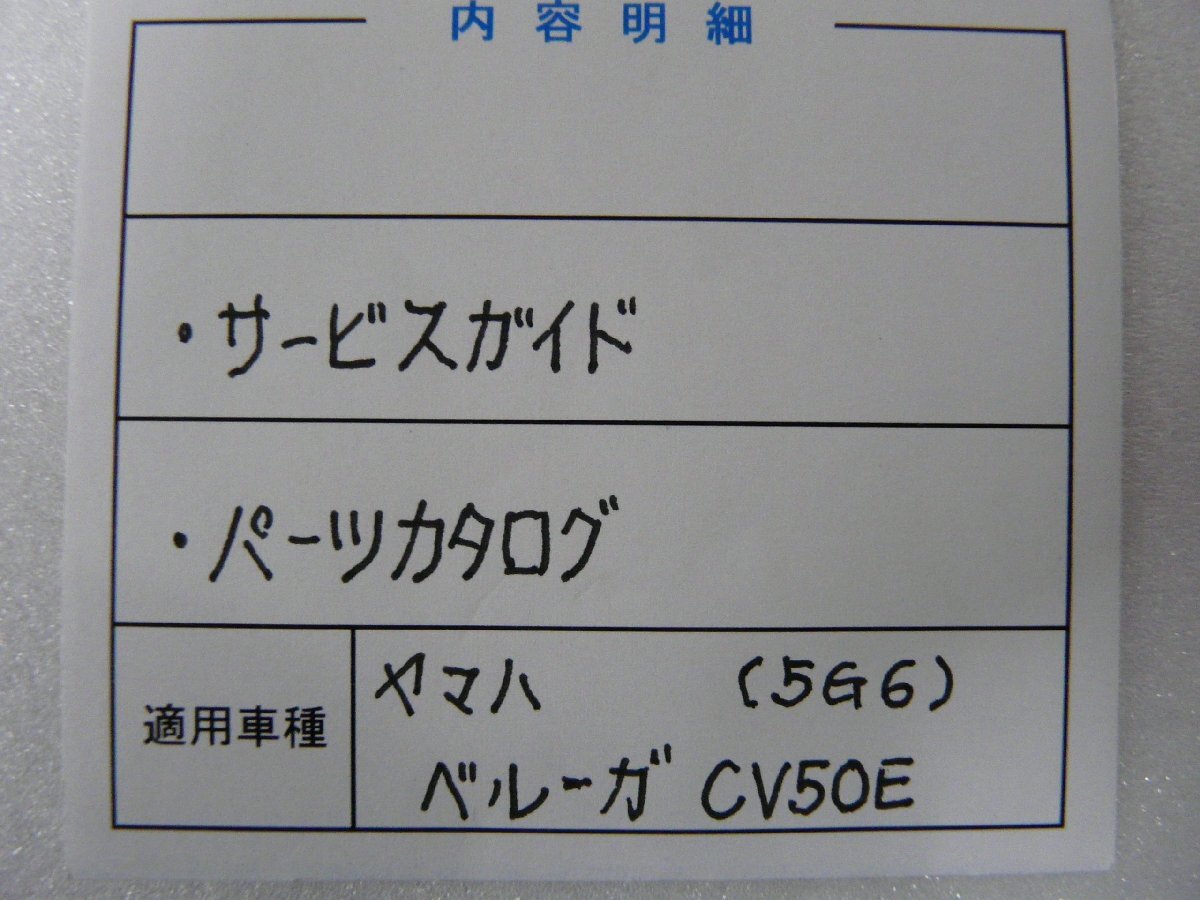 内容明細
・サービスガイド
・パーツカタログ
適用車種
ヤマハ (5G6)
ベルーガ CV50E